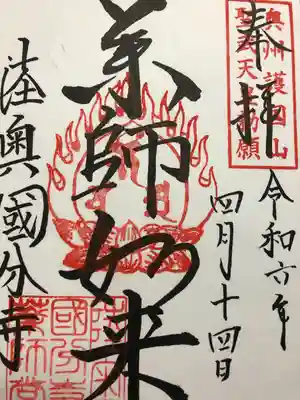 奉拝
奥州護国山
聖武天皇勅願
令和六年
四月十四日
薬師如来
陸奥國分寺
陸奥
國分寺
薬師堂